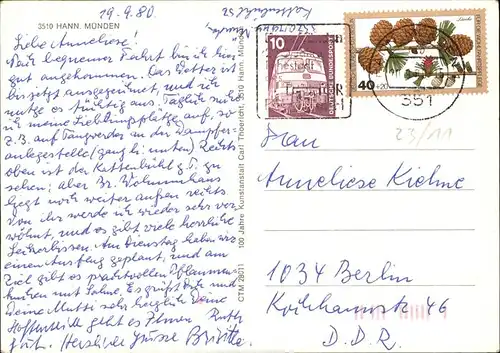 3510 HANN. MÜNDEN
19.9.80
Liebe Anneliese!
Nach bequemer Fahrt bin ich hier
gut angekommen. Das Wetter ist
bis jetzt ausgezeichnet, und ich
nutze es tüchtig aus. Täglich suche
ich meine Lieblingsplätze auf, so
z.B. auf Tanzwerder an der Dampfer-
anlegestelle unten) Rechts
oben ist der Kattenbühl z.T. zu
sehen; aber Br. Wohnung
liegt noch weiter außen rechts
Von ihr werde ich wieder sehr ver-
wöhnt, und es gibt viele herrliche
Leckerbissen. Am Dienstag haben wir
einen Ausflug geplant, und am
Ziel gibt es prachtvollen Pflaumen-
kuchen mit Sahne. Es grüßt Dich und
Deine Mutti sehr herzlich Deine
Ruth
Hoffentlich geht es Ihnen
gut. Herzliche Grüsse Brigitte
CTM 28011
100 Jahre Kunstanstalt Carl Thoericht, 3510 Hann. Münden
10
DEUTSCHE BUNDESPOST
40+20
351
23/11
Frau
Anneliese Kiehne
1034 Berlin
46
D.D.R.